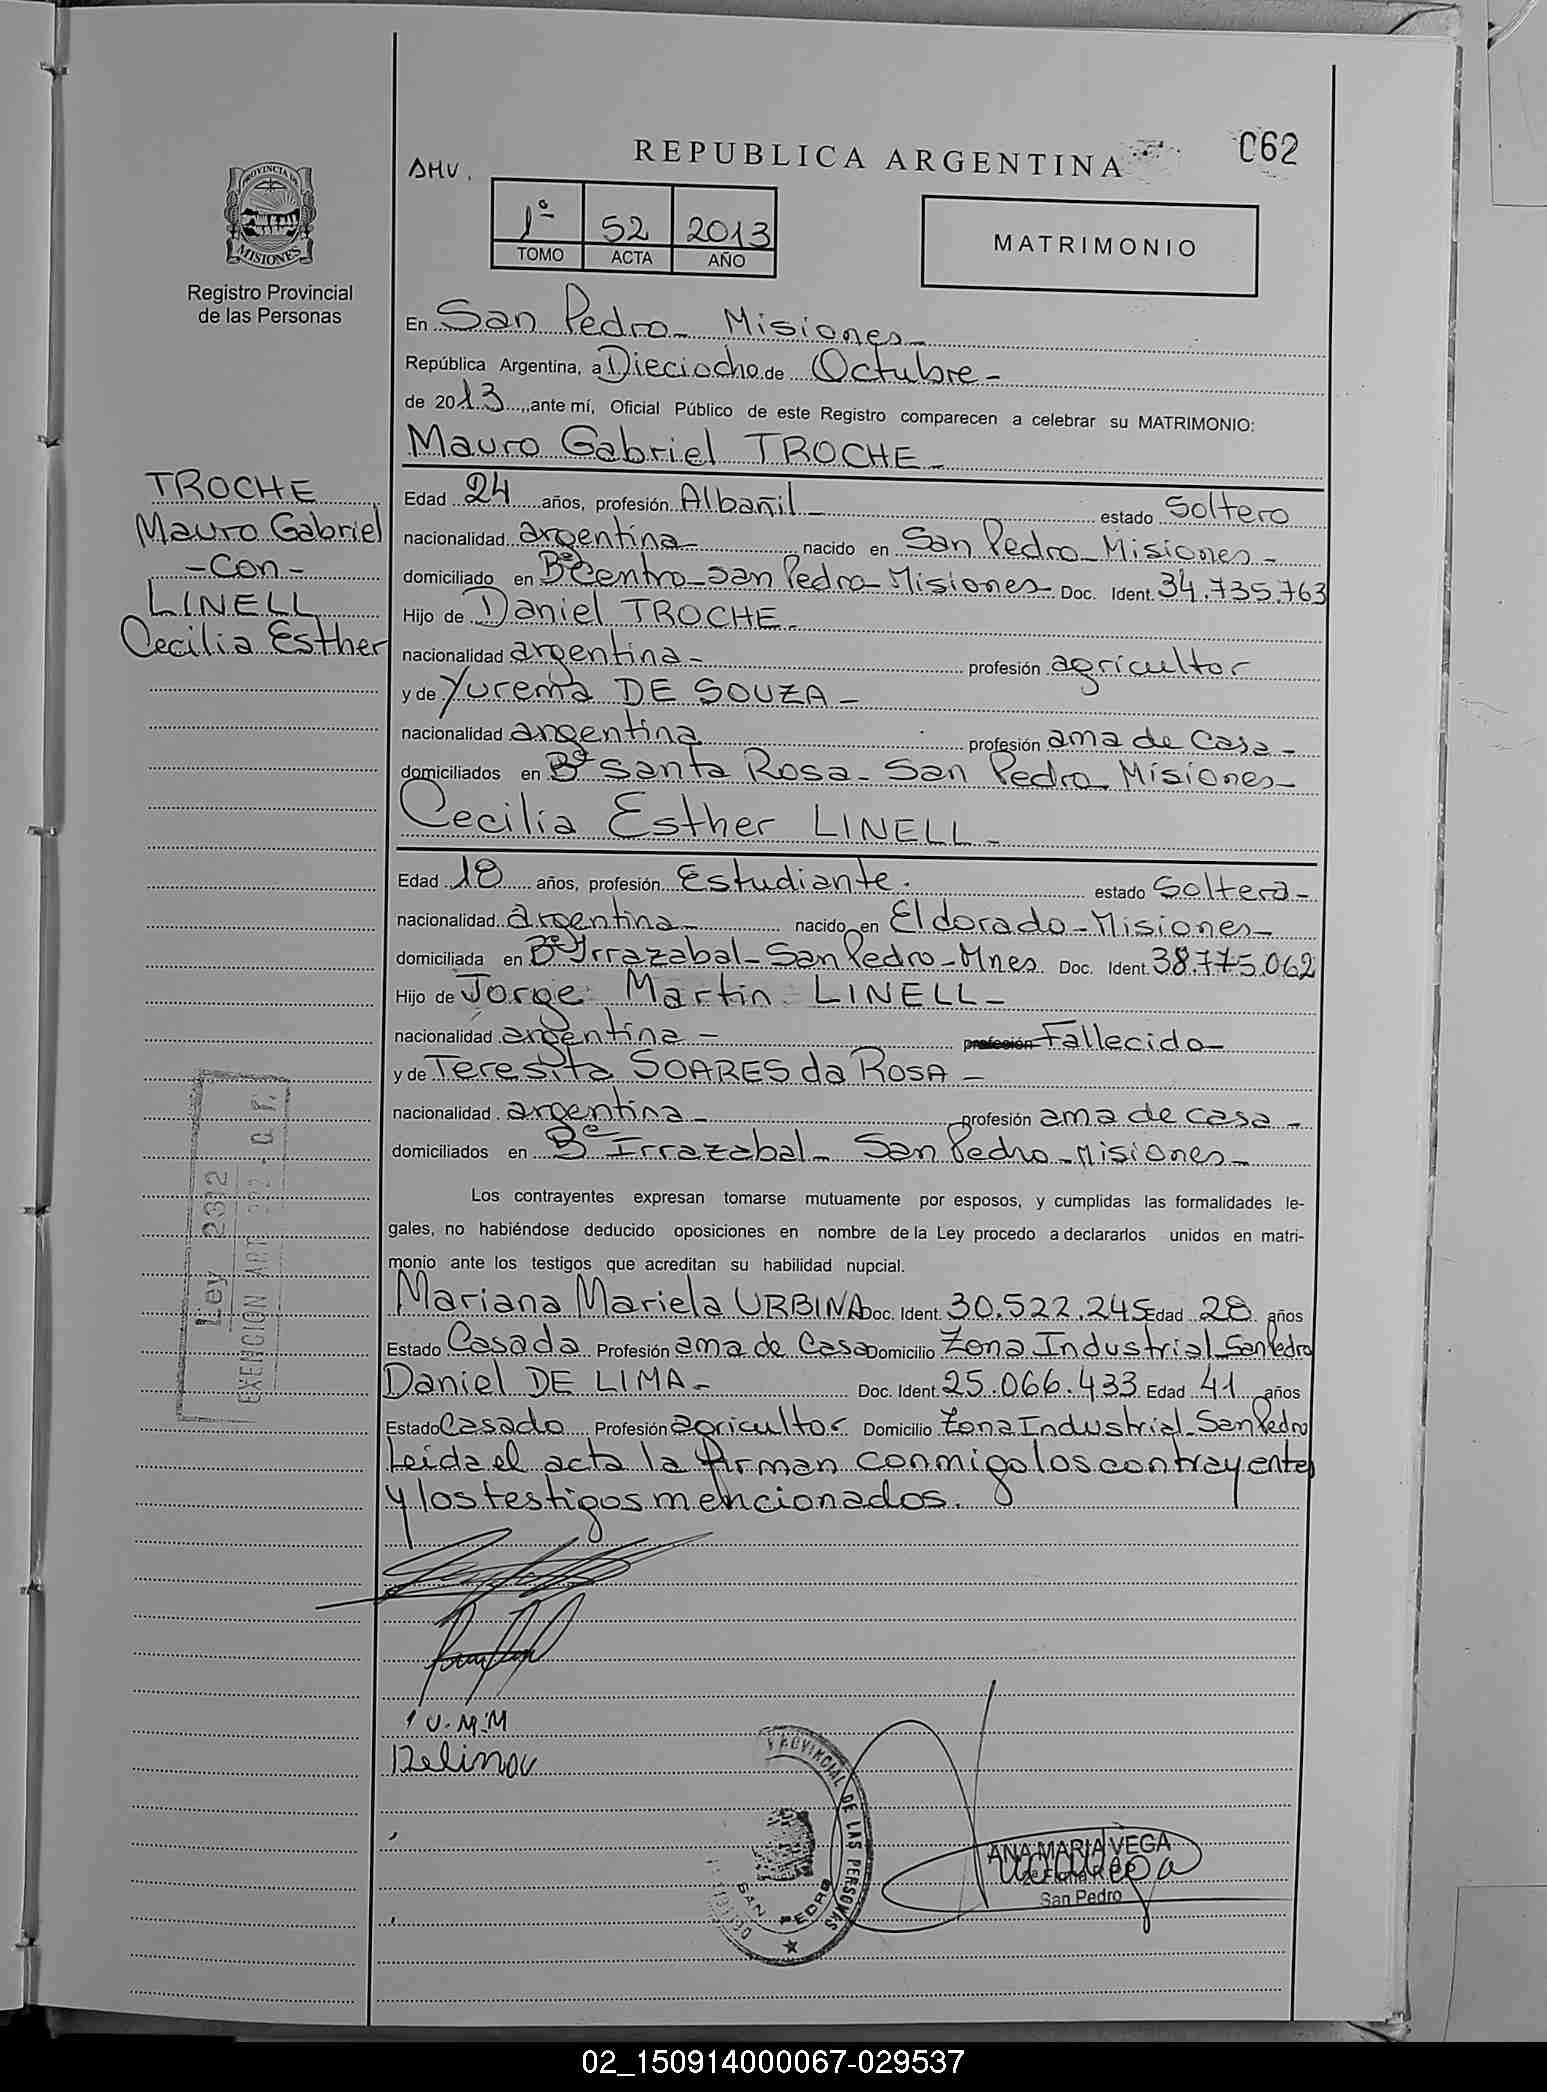 REPUBLICA ARGENTINA
062
AMV.
PROVINCIA DE
MISIONES
Registro Provincial
de las Personas
1º 52 2013
TOMO ACTA AÑO
MATRIMONIO
En San Pedro - Misiones -
República Argentina, a Dieciocho de Octubre -
de 2013, ante mí, Oficial Público de este Registro comparecen a celebrar su MATRIMONIO:
Mauro Gabriel TROCHE -
TROCHE
Mauro Gabriel
- Con -
LINELL
Cecilia Esther
Edad 24 años, profesión Albañil - estado Soltero
nacionalidad argentina - nacido en San Pedro - Misiones -
domiciliado en Bº Centro - San Pedro - Misiones - Doc. Ident. 34.735.763
Hijo de Daniel TROCHE -
nacionalidad argentina - profesión agricultor
y de Yurema DE SOUZA -
nacionalidad argentina profesión ama de casa -
domiciliados en Bº Santa Rosa - San Pedro - Misiones -
Cecilia Esther LINELL -
Edad 18 años, profesión Estudiante. estado Soltera -
nacionalidad argentina - nacido en Eldorado - Misiones -
domiciliada en Bº Irrazabal - San Pedro - Mnes Doc. Ident. 38.775.062
Hijo de Jorge Martin LINELL -
nacionalidad argentina - profesión Fallecido -
y de Teresita SOARES da ROSA -
nacionalidad argentina - profesión ama de casa -
domiciliados en Bº Irrazabal - San Pedro - Misiones -
Los contrayentes expresan tomarse mutuamente por esposos, y cumplidas las formalidades le-
gales, no habiéndose deducido oposiciones en nombre de la Ley procedo a declararlos unidos en matri-
monio ante los testigos que acreditan su habilidad nupcial.
Mariana Mariela URBINA Doc. Ident. 30.522.245 Edad 28 años
Estado Casada Profesión ama de Casa Domicilio Zona Industrial - San Pedro
Daniel DE LIMA - Doc. Ident. 25.066.433 Edad 41 años
Estado Casado Profesión agricultor Domicilio Zona Industrial - San Pedro
Leida el acta la firman conmigo los contrayentes
y los testigos mencionados.
Ley 2332
EXENCION ART 22
U.M.M
Delima
PROVINCIAL DE LAS PERSONAS
SAN PEDRO
ANA MARIA VEGA
San Pedro
02_150914000067-029537